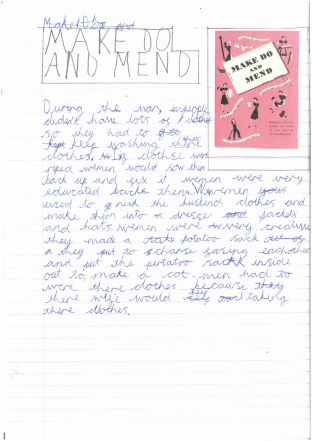 Make Do and
MAKE DO
AND MEND
MAKE DO
AND
MEND
During the war, people
didn't have lots of clothes
so they had to
keep washing there
clothes, clothse were
riped women would sow them
back up and fix it women were very
educated back then. women
used to nick the husband clothes and
make them into a dresse and jackets
and hats. women were very creative
they made a potatoo sack
a they put to chairse facing eachother
and put the potatoo sack inside
out to make a cot. men had to
were there clothes because they
there wife would taking
there clothes.